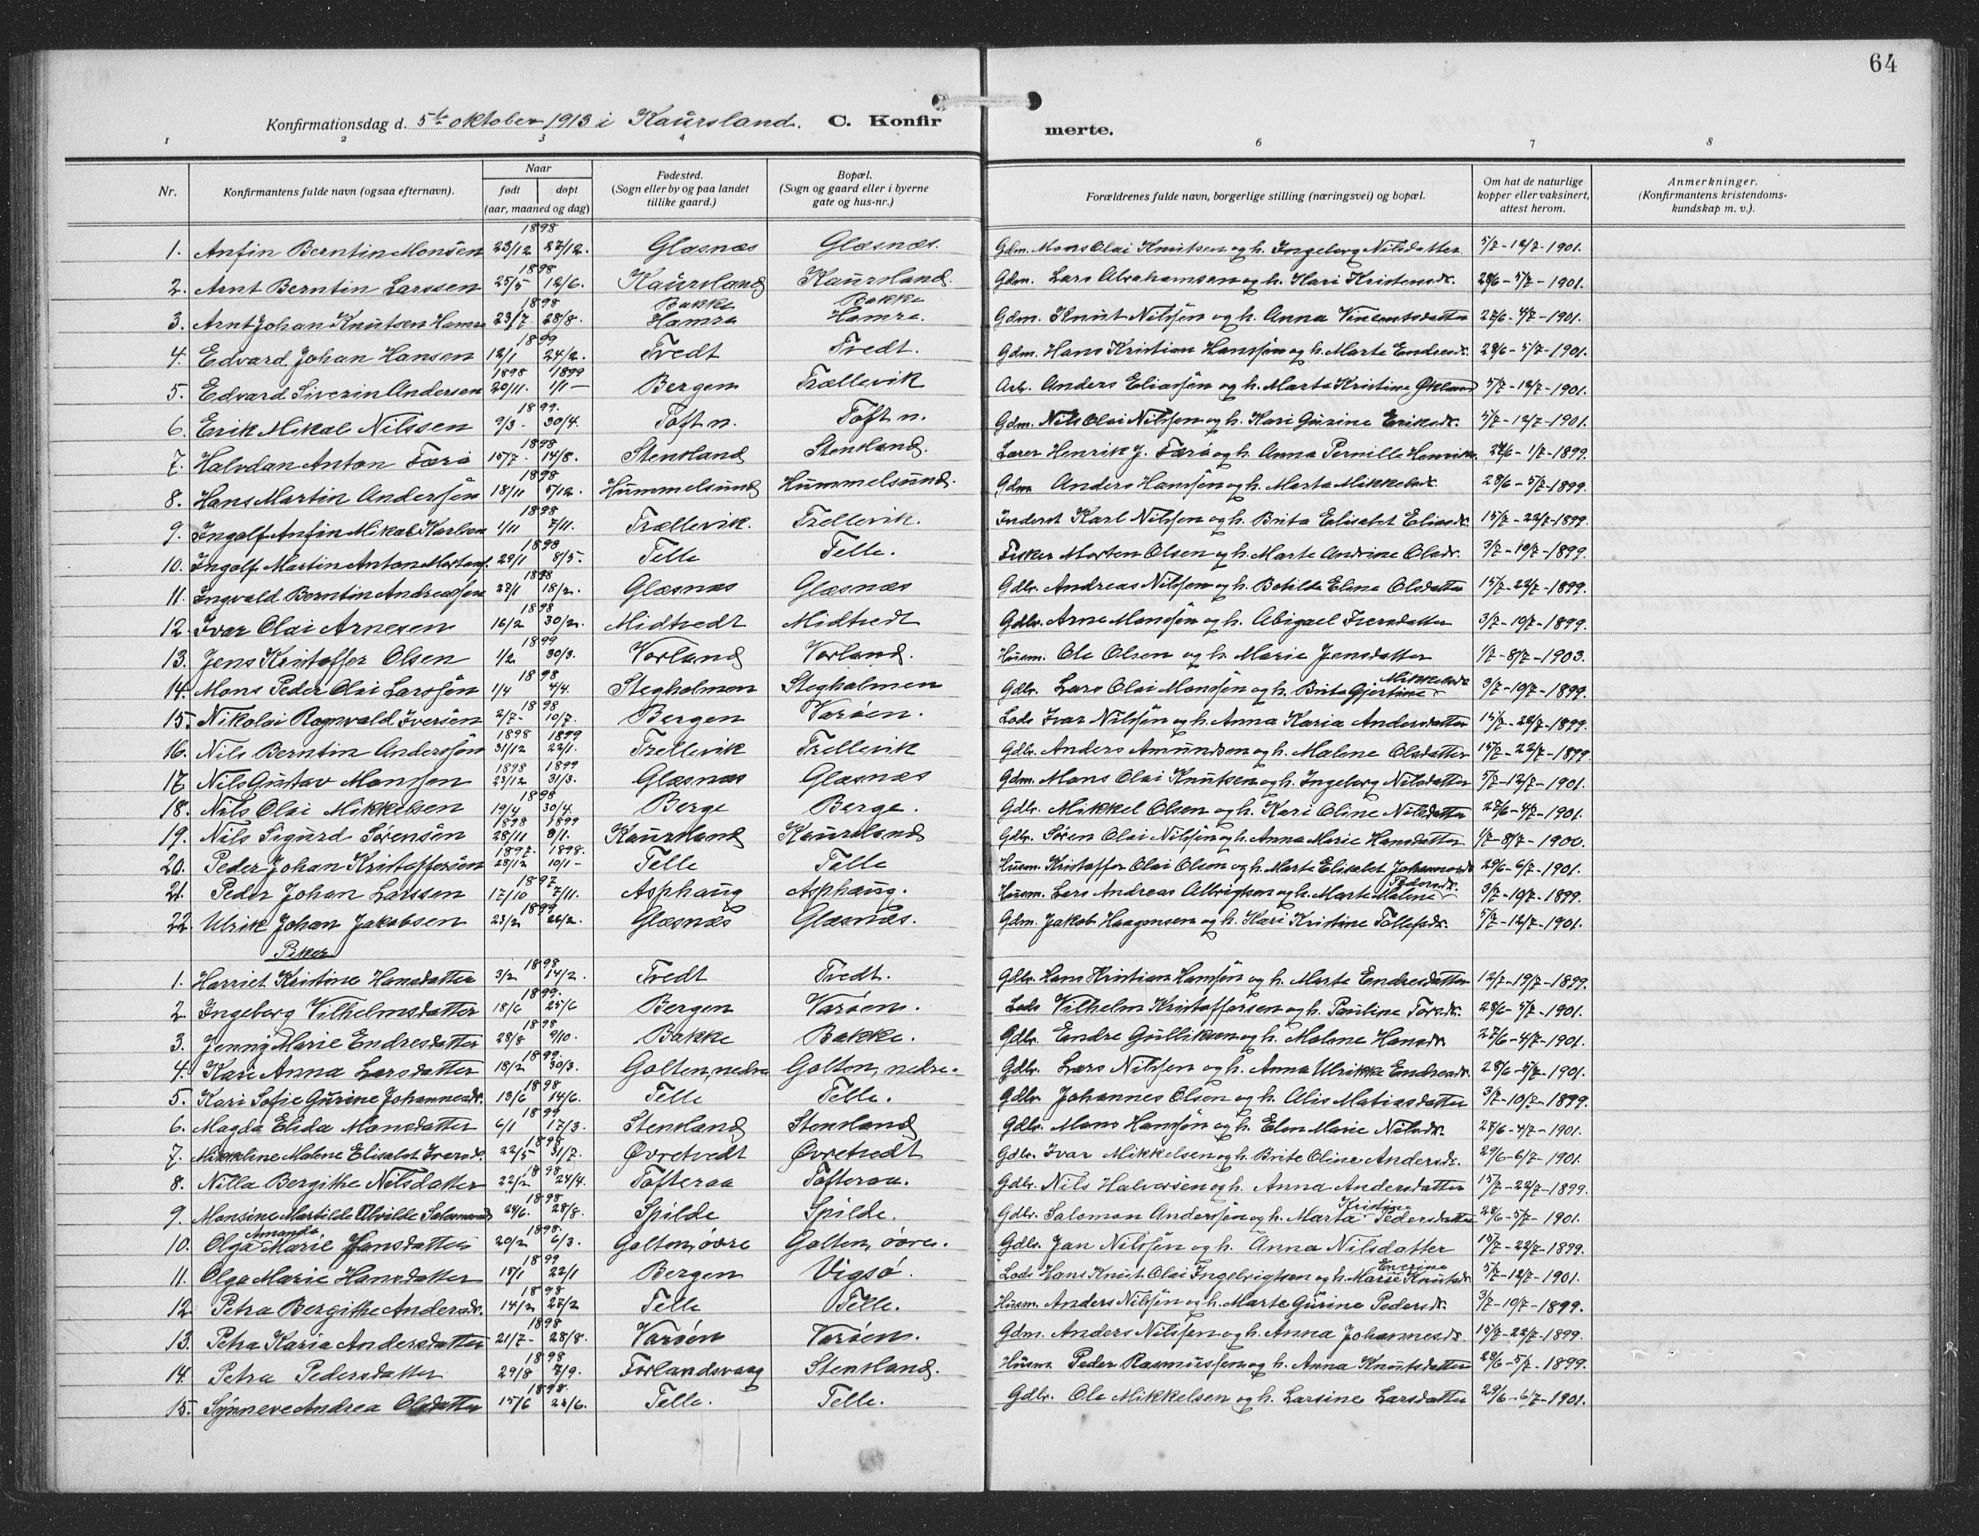 64
Konfirmationsdag d. 5te oktober 1913 i Kaursland. C. Konfirmerte.
1 2 3 4 6 7 8
Nr. Konfirmantens fulde navn (ogsaa efternavn). Naar født døpt (aar, maaned og dag) Fødested. (Sogn eller by og paa landet tillike gaard.) Bopæl. (Sogn og gaard eller i byerne gate og hus-nr.) Forældrenes fulde navn, borgerlige stilling (næringsvei) og bopæl. Om hat de naturlige kopper eller vaksinert, attest herom. Anmerkninger. (Konfirmantens kristendomskundskap m. v.).
1. Anfin Berntin Monsen 1898 23/12 27/12. Glæsnæs Glæsnæs. Gdm. Mons Olai Knutsen og h. Ingeborg Nilsdatter 5/7-12/7-1901.
2. Arnt Berntin Larssen 1898 25/5 12/6. Kaursland Kaursland Gdm. Lars Abrahamsen og h. Kari Kristensdr. 28/6-5/7-1901.
3. Arnt Johan Knutsen Hamre 1898 23/7 28/8. Bakke Hamre Bakke Hamre. Gdm. Knut Nilssøn og h. Anna Vincentsdatter 27/6-4/7-1901.
4. Edvard Johan Hansen 1899 12/1 24/2. Tvedt Tvedt. Gdm. Hans Kristian Hanssøn og h. Marte Endresdr. 28/6-5/7-1901.
5. Edvard Siverin Andersen 1898 20/11. 1899 1/1- Bergen Trællevik Arb. Anders Eliassøn og h. Marta Kristine Økland 5/7-12/7-1901.
6. Erik Mikal Nilssen 1899. 9/3. 30/4. Toft n. Toft n. Gdm. Nils Olai Nilssøn og h. Kari Gurine Eriksdr. 5/7-12/7-1901.
7. Halvdan Anton Færø 1898 15/7. 14/8. Stensland Stensland. Lærer Henrik J. Færø og h. Anna Pernille Henriks. 24/6-1/7-1899.
8. Hans Martin Anderssøn 1898 18/11 5/12. Hummelsund Hummelsund. Gdm Anders Hanssøn og h. Marta Mikkelsdr. 28/6-5/7-1899.
9. Ingolf Anfin Mikal Karlsen 1898 1/11 7/11. Trællevik. Trellevik. Inderst Karl Nilssøn og h. Brita Elisabet Eliasdr. 15/7-22/7-1899.
10. Ingolf Martin Anton Mortens. 1898 29/1 8/5- Telle Telle. Fisker Morten Olsen og h. Marte Andrine Olsdr. 3/7-10/7-1899.
11. Ingvald Berntin Andreassøn 1898 27/1 18/2. Glæsnæs Glæsnæs Gdbr. Andreas Nilssøn og h. Botilde Elene Olsdatter 15/7-22/7-1899.
12. Ivar Olai Arnesen 1898 16/2 30/2. Midtvedt Midtvedt Gdbr. Arne Monssøn og h. Abigael Iversdatter 3/7-10/7-1899.
13. Jens Kristoffer Olsen 1899 1/2 30/3. Vorland Vorland. Husm. Ole Olsen og h. Marie Jensdatter 1/7-8/7-1903.
14. Mons Peder Olai Larssøn 1898 1/4 4/4. Stegholmen Stegholmen Gdbr. Lars Olai Monssøn og h. Brita Gjertine Mikkelsdr 3/7-10/7-1899.
15. Nikolai Ragnvald Iversen 1898 2/7- 10/7. Bergen Varøen. Lods Ivar Nilssøn og h. Anna Karia Andersdatter 15/7-22/7-1899.
16. Nils Berntin Anderssøn 1898 31/12 1899 22/1. Trellevik Trellevik Gdbr. Anders Amundsen og h. Malene Olsdatter 15/7-22/7-1899
17. Nils Gustav Monssen 1898 23/12 1899 31/3. Glæsnæs Glæsnæs Gdm. Mons Olai Knutsen og h. Ingeborg Nilsdatter 5/7-12/7-1901.
18. Nils Olai Mikkelsen 1898 19/4 30/4. Berge Berge. Gdbr. Mikkel Olsen og h. Kari Oline Nilsdatter 27/6-4/7-1901.
19. Nils Sigurd Sørensøn 1898 28/11 1899 8/1. Kaursland Kaursland Gdbr. Søren Olai Nilssøn og h. Anna Marie Hansdatter 1/7-8/7-1900.
20. Peder Johan Kristoffersen 1897. 28/12 1898. 10/1- Telle Telle Husm. Kristoffer Olai Olsen og h. Marte Elisabet Johannesdr 29/6-6/7-1901.
21. Peder Johan Larssen 1897 17/10 7/11. Asphaug Asphaug. Husm. Lars Andreas Albrigtsen og h. Marte Malene Pedersdr. 3/7-10/7-1899.
22. Ulrik Johan Jakobsen 1899 23/2 26/2. Glæsnæs Glæsnæs. Gdm. Jakob Haagensen og h. Kari Kristine Tollefsdr. 5/7-12/7-1901.
Piker
1. Harriet Kristine Hansdatter 1898 3/2 14/2. Tvedt Tvedt. Gdbr. Hans Kristian Hanssøn og h. Marte Endresdatter 12/7-19/7-1899.
2. Ingeborg Vilhelmsdatter 1899. 18/6 25/6 Bergen Varøen. Lods Vilhelm Kristoffersen og h. Pauline Torsdr. 28/6-5/7-1901.
3. Jenny Marie Endresdatter 1898 28/8 9/10. Bakke Bakke. Gdbr. Endre Gulliksen og h. Malene Hansdr 27/6-4/7-1901.
4. Kari Anna Larsdatter 1899. 18/2 30/3. Golten, nedre Golten, nedre. Gdbr. Lars Nilssøn og h. Anna Ulrikke Endresdr. 28/6-5/7-1901.
5. Kari Sofie Gurine Johannesdr. 1898 13/6 14/6. Telle Telle. Gdbr. Johannes Olsen og h. Alis Matiasdatter 3/7-10/7-1899.
6. Magda Elida Monsdatter 1899 6/1 17/3. Stensland Stensland Gdbr. Mons Hanssøn og h. Elen Marie Nilsdr. 27/6-4/7-1901.
7. Mikkeline Malene Elisabet Iversdr. 1898 22/5 31/7. Øvretvedt Øvretvedt Gdbr. Ivar Mikkelsen og h. Brite Oline Andersdr. 29/6-6/7-1901.
8. Nilla Bergithe Nilsdatter 1898 22/2 24/4. Tofteraa Tofteraa. Gdbr. Nils Halvorsen og h. Anna Andersdatter 15/7-22/7-1899.
9. Monsine Martilde Alvilde Salomonsd. 1898. 24/6. 28/8. Spilde Spilde. Gdbr. Salomon Anderssøn og h. Marta Kristine Pedersdatter 28/6-5/7-1901.
10. Olga Amanda Marie Jansdatter 1898. 20/2 6/3. Golten, øvre Golten, øvre. Gdbr. Jan Nilssøn og h. Anna Nilsdatter 15/7-22/7-1899.
11. Olga Marie Hansdatter 1899 15/1 22/1 Bergen Vigsø. Lods Hans Knut Olai Ingebrigtsen og h. Marie Everine Knutsdr. 5/7-12/7-1901.
12. Petra Bergithe Andersdr. 1898 14/2 27/2 Telle Telle. Husm. Anders Nilssøn og h. Marte Gurine Pedersdr. 3/7-10/7-1899.
13. Petra Karia Andersdatter 1898 21/7- 28/8. Varøen Varøen. Gdm. Anders Nilssøn og h. Anna Johannesdr. 15/7-22/7-1899.
14. Petra Pedersdatter 1898 29/8 7/9. Forlandsvaag Stensland. Husm Peder Rasmussen og h. Anna Knutsdatter 28/6-5/7-1899.
15. Synneve Andrea Olsdatter 1898. 15/6 26/6. Telle. Telle. Gdbr. Ole Mikkelsen og h. Larsine Larsdatter 29/6-6/7-1901.